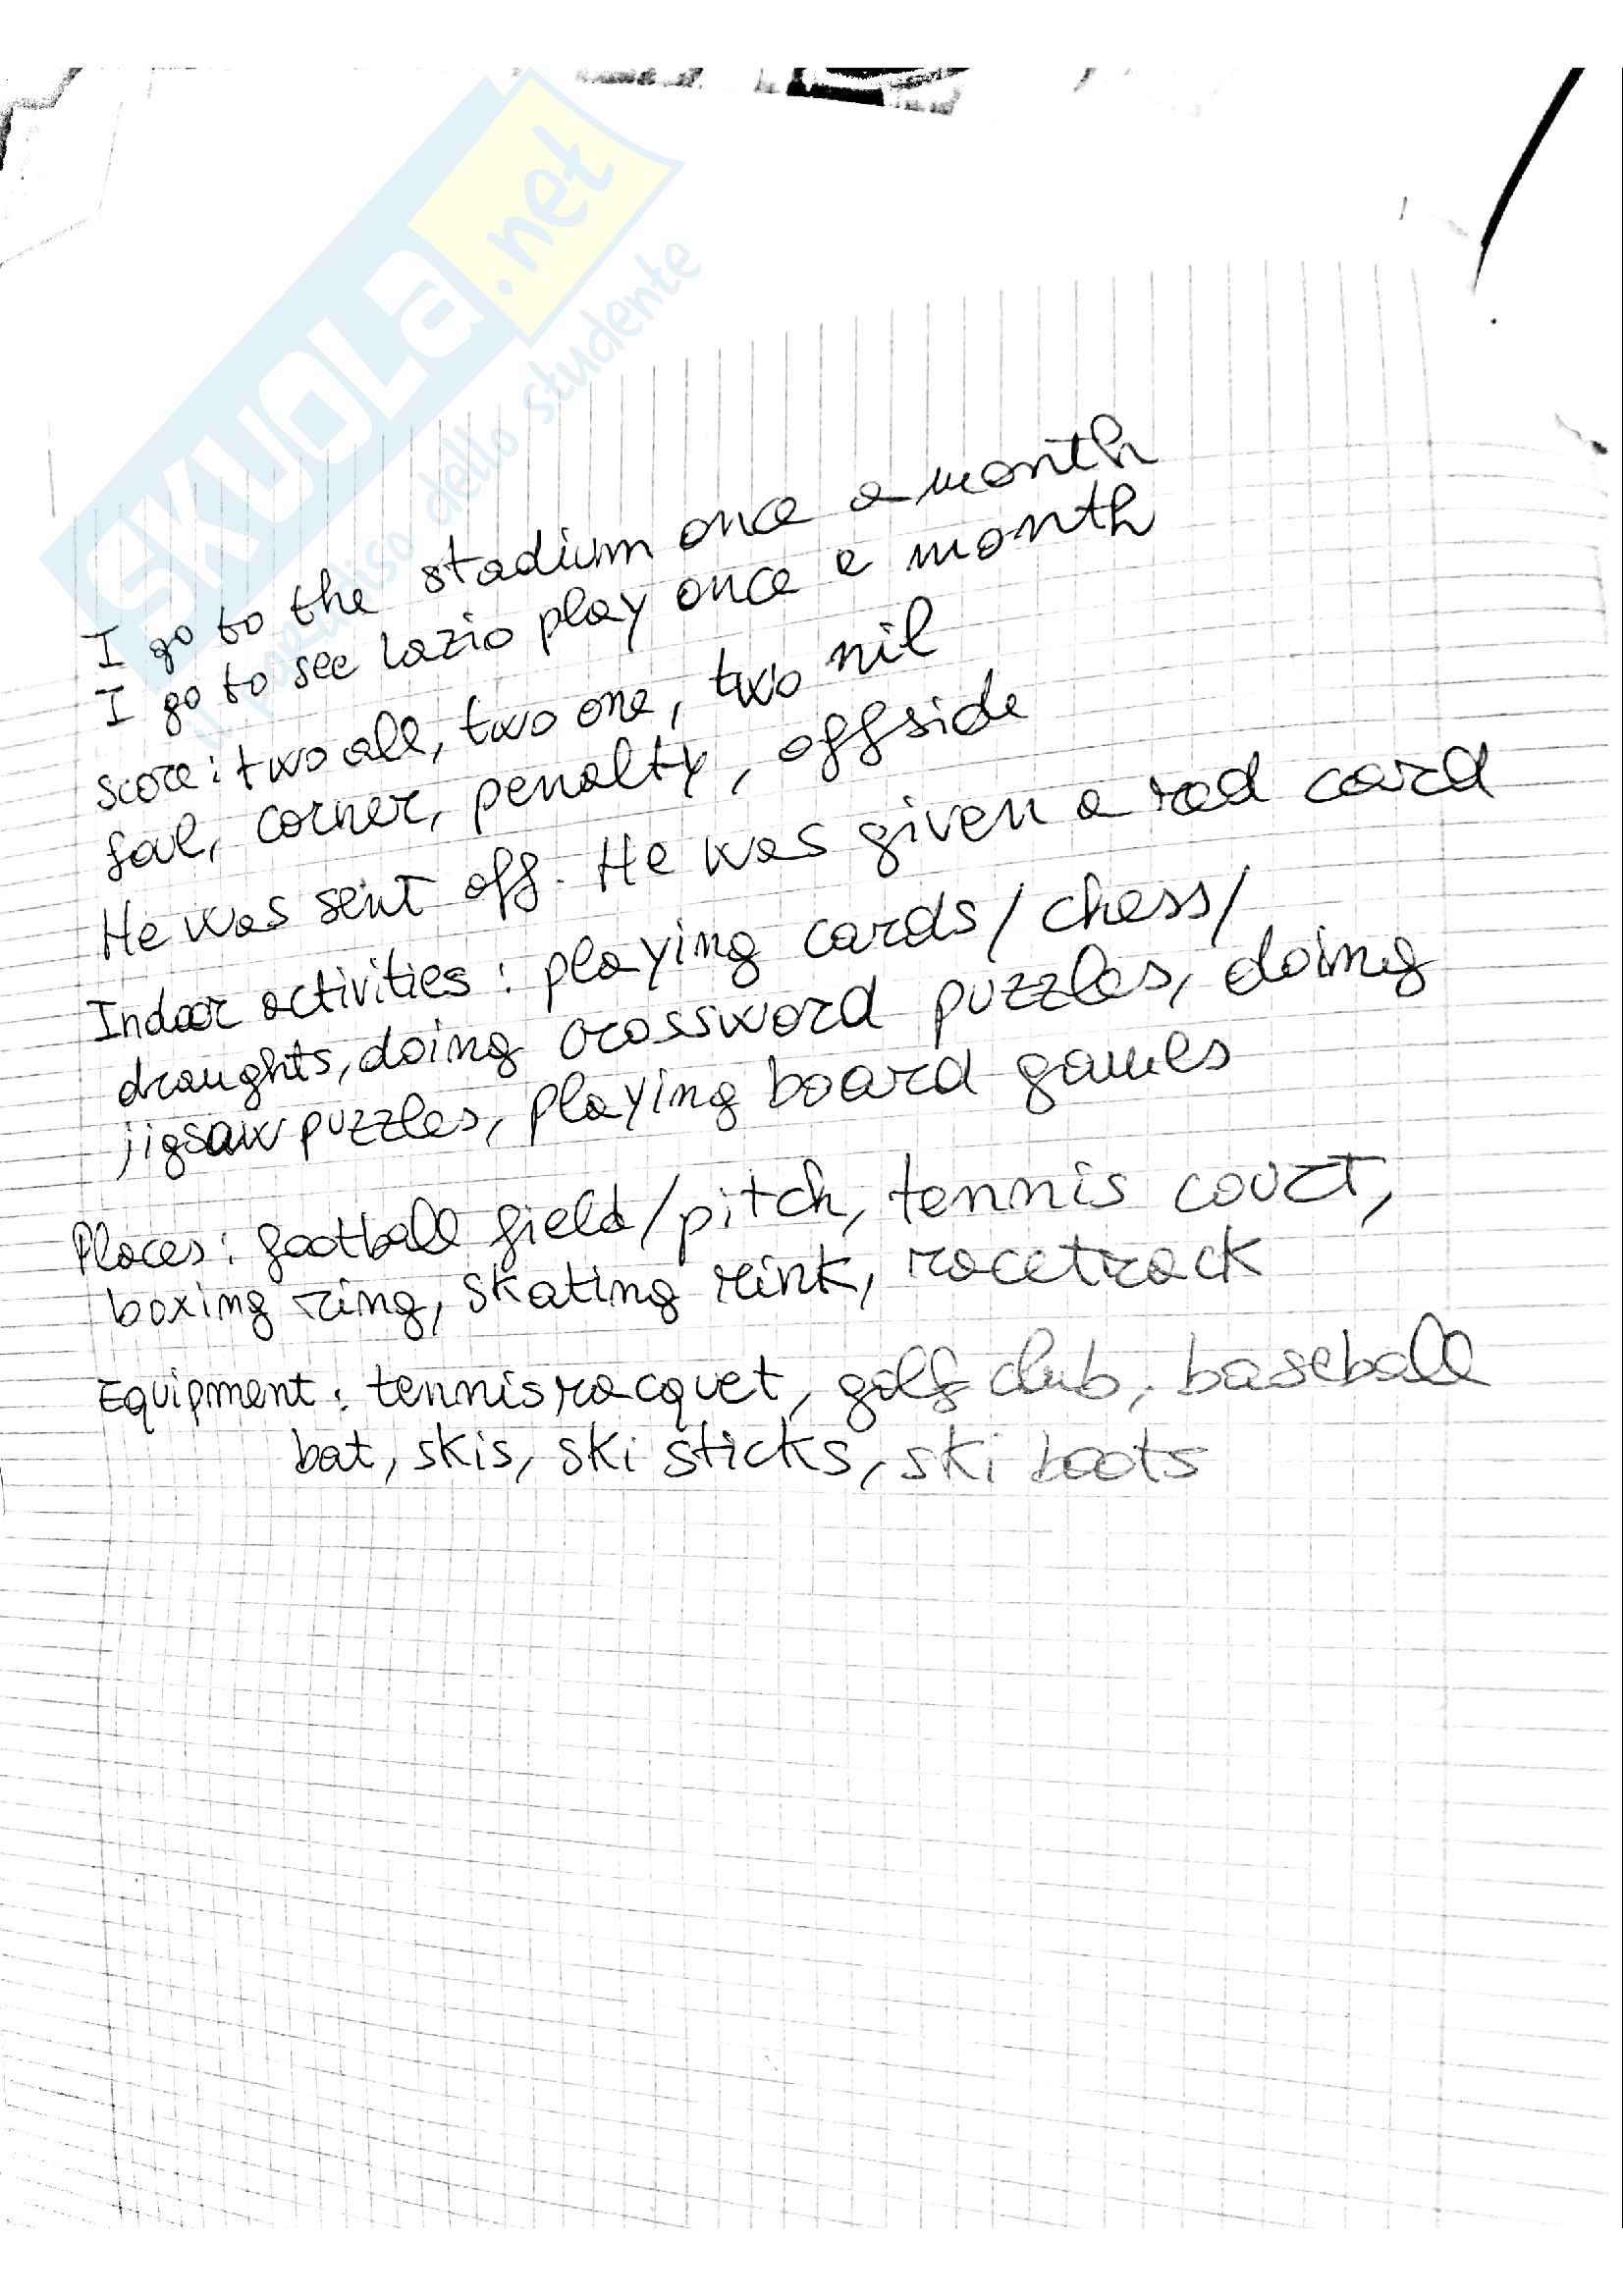 SKUOLA.net
il paradiso dello studente
I go to the stadium once a month
I go to see Lazio play once a month
score: two all, two one, two nil
foul, corner, penalty, offside
He was sent off. He was given a red card
Indoor activities: playing cards/chess/
draughts, doing crossword puzzles, doing
jigsaw puzzles, playing board games
Places: football field/pitch, tennis court,
boxing ring, skating rink, racetrack
Equipment: tennis racquet, golf club, baseball
bat, skis, ski sticks, ski boots